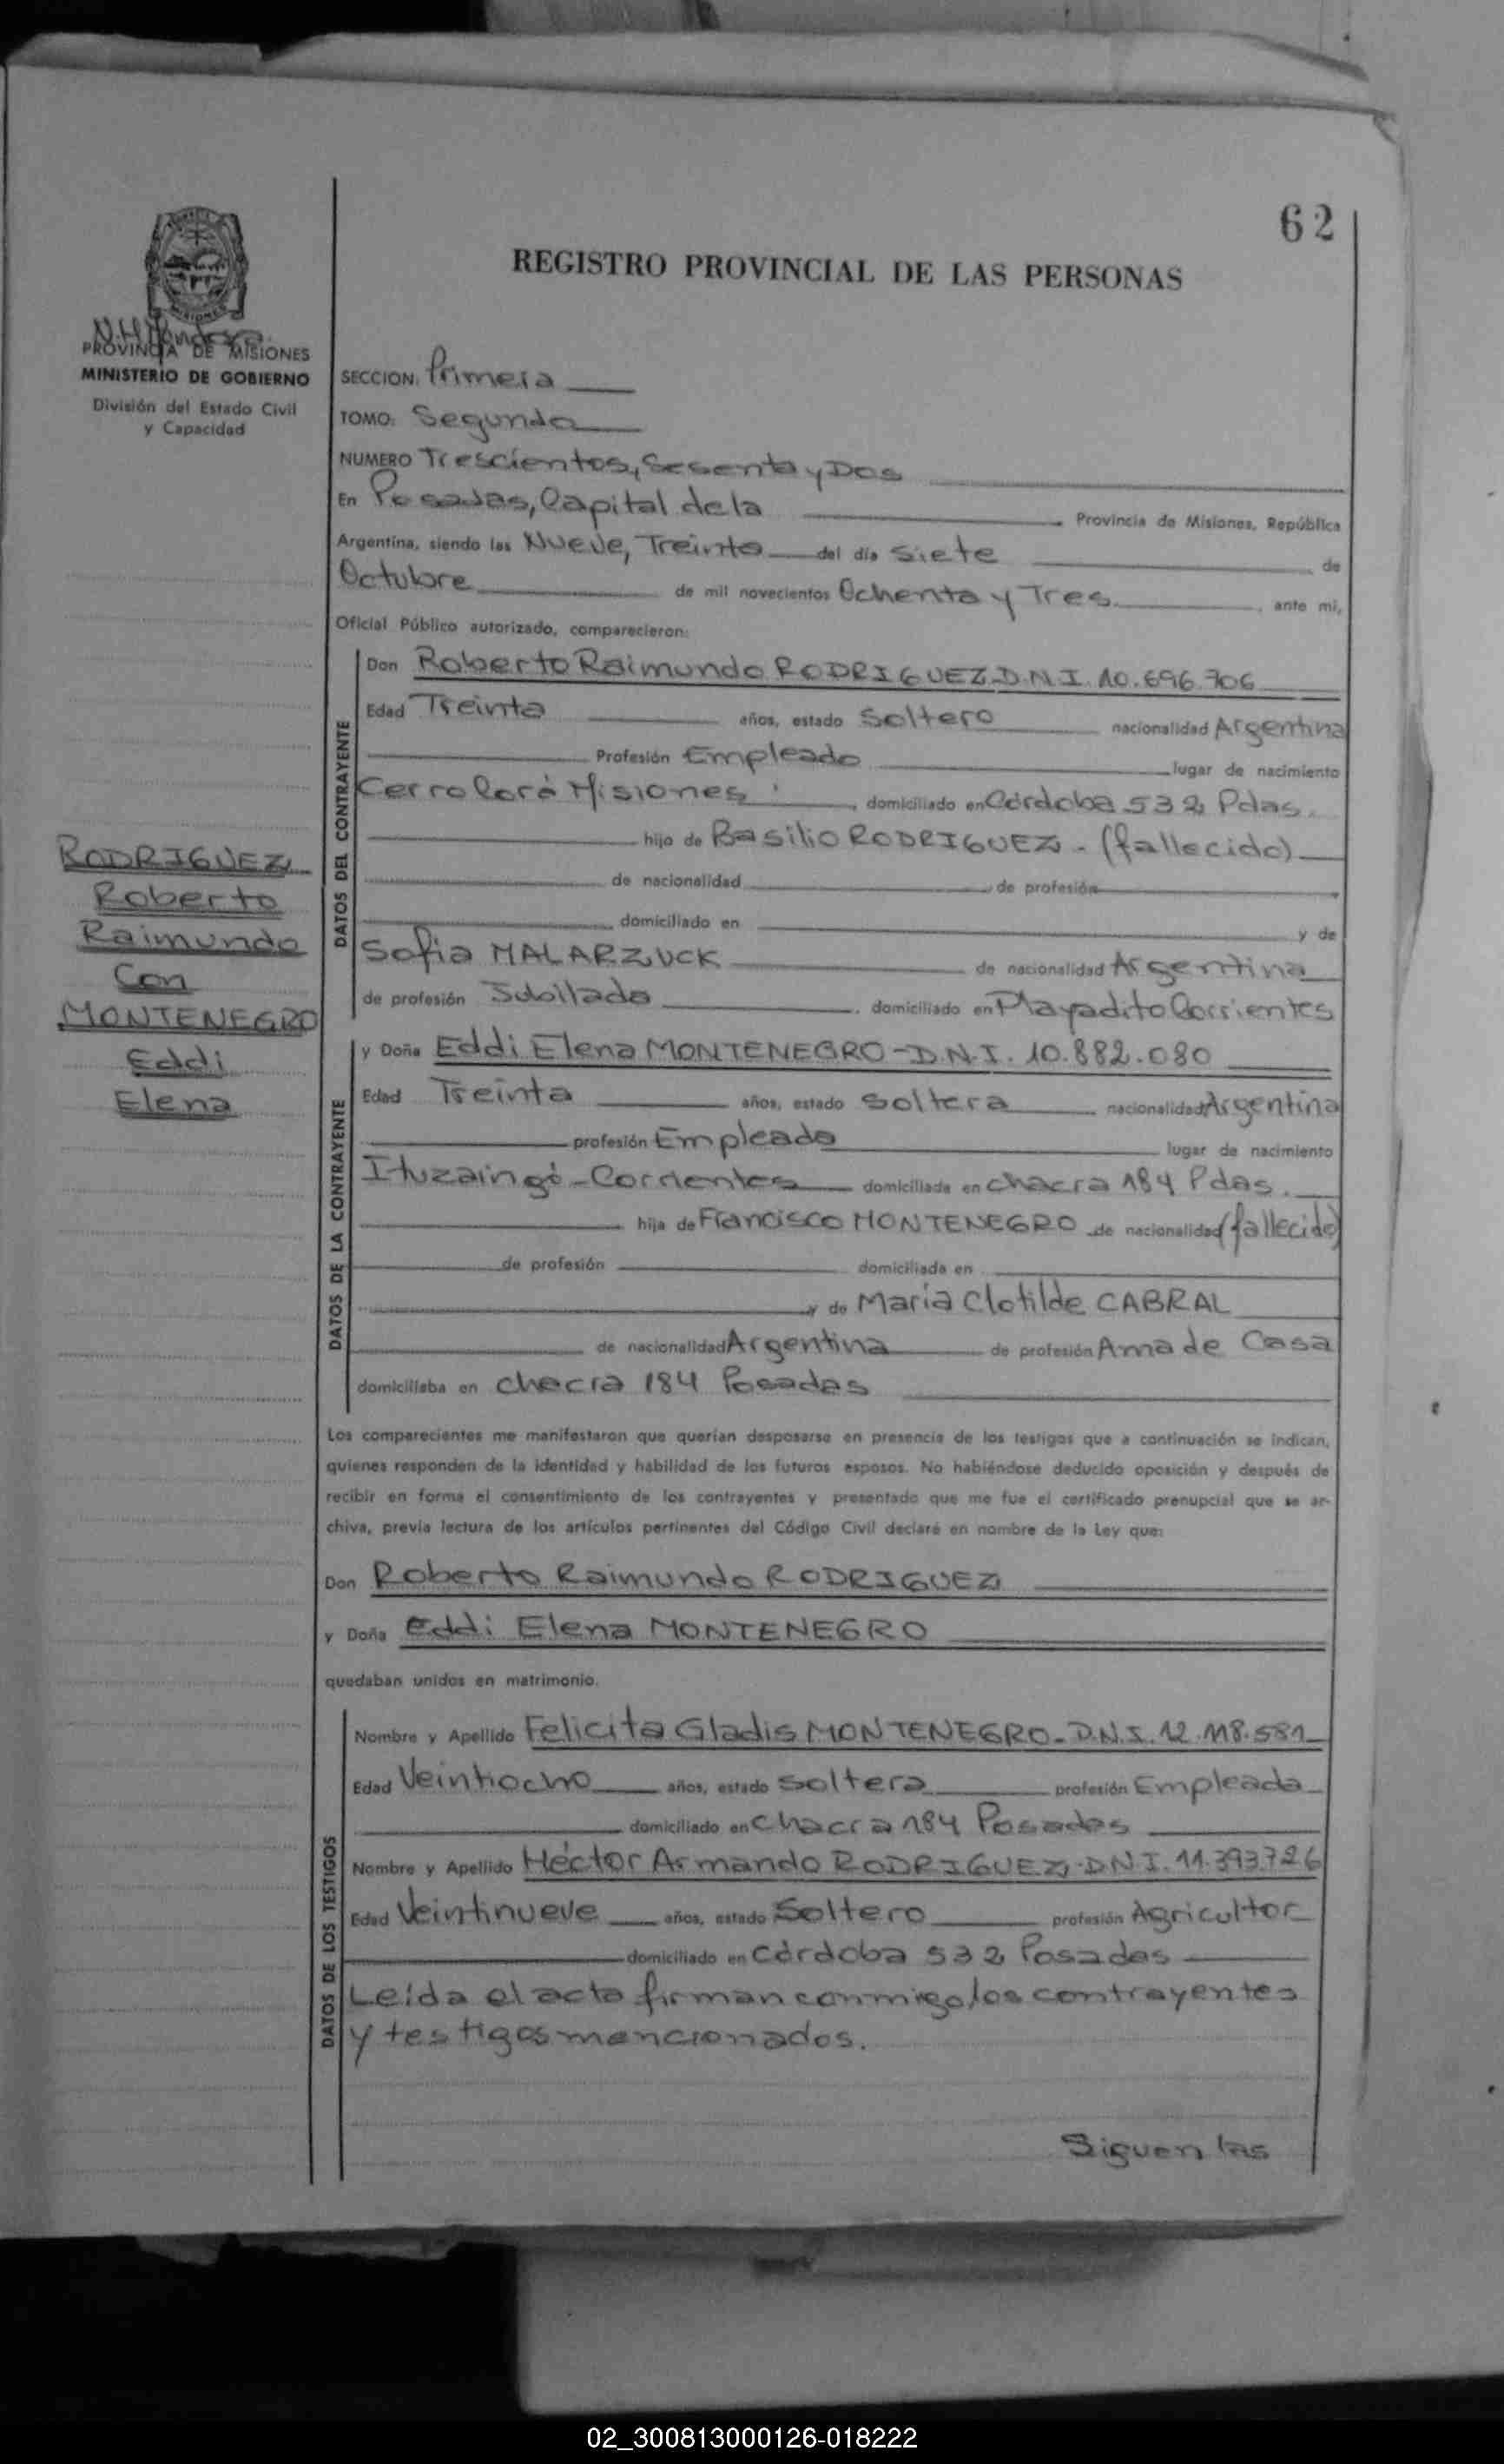 62
REGISTRO PROVINCIAL DE LAS PERSONAS
PROVINCIA DE MISIONES
MINISTERIO DE GOBIERNO
División del Estado Civil
y Capacidad
SECCION: Primera
TOMO: Segundo
NUMERO Trescientos, Sesenta y Dos
En Posadas, Capital de la Provincia de Misiones, República
Argentina, siendo las Nueve, Treinta del día Siete de
Octubre de mil novecientos Ochenta y Tres, ante mí,
Oficial Público autorizado, comparecieron:
DATOS DEL CONTRAYENTE
Don Roberto Raimundo RODRIGUEZ D.N.I. 10.696.706
Edad Treinta años, estado Soltero nacionalidad Argentina
Profesión Empleado lugar de nacimiento
Cerro Corá Misiones, domiciliado en Córdoba 532 Pdas.
hijo de Basilio RODRIGUEZ - (fallecido)
de nacionalidad, de profesión
domiciliado en y de
Sofia MALARZUCK de nacionalidad Argentina
de profesión Jubilada, domiciliado en Playadito Corrientes
RODRIGUEZ
Roberto
Raimundo
Con
MONTENEGRO
Eddi
Elena
DATOS DE LA CONTRAYENTE
y Doña Eddi Elena MONTENEGRO - D.N.I. 10.882.080
Edad Treinta años, estado Soltera nacionalidad Argentina
profesión Empleada lugar de nacimiento
Ituzaingó - Corrientes domiciliada en chacra 184 Pdas.
hija de Francisco MONTENEGRO de nacionalidad (fallecido)
de profesión domiciliada en
y de Maria Clotilde CABRAL
de nacionalidad Argentina de profesión Ama de Casa
domiciliaba en chacra 184 Posadas
Los comparecientes me manifestaron que querían desposarse en presencia de los testigos que a continuación se indican,
quienes responden de la identidad y habilidad de los futuros esposos. No habiéndose deducido oposición y después de
recibir en forma el consentimiento de los contrayentes y presentado que me fue el certificado prenupcial que se ar-
chiva, previa lectura de los artículos pertinentes del Código Civil declaré en nombre de la Ley que:
Don Roberto Raimundo RODRIGUEZ
y Doña Eddi Elena MONTENEGRO
quedaban unidos en matrimonio.
DATOS DE LOS TESTIGOS
Nombre y Apellido Felicita Gladis MONTENEGRO - D.N.I. 12.118.581
Edad Veintiocho años, estado Soltera profesión Empleada
domiciliado en Chacra 184 Posadas
Nombre y Apellido Héctor Armando RODRIGUEZ - D.N.I. 11.393.726
Edad Veintinueve años, estado Soltero profesión Agricultor
domiciliado en Córdoba 532 Posadas
Leída el acta firman conmigo los contrayentes
y testigos mencionados.
Siguen las
02_300813000126-018222